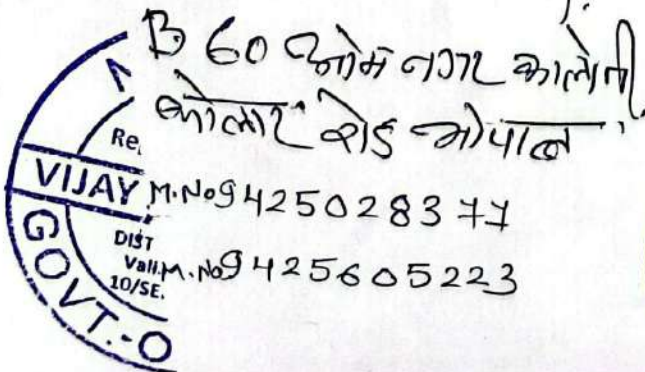 B 60 ओम नगर कालोनी
कोलार रोड भोपाल
M.No 9425028377
M.No 9425605223
Re
VIJAY
DIST
Vali
10/SE.
GOVT.-O